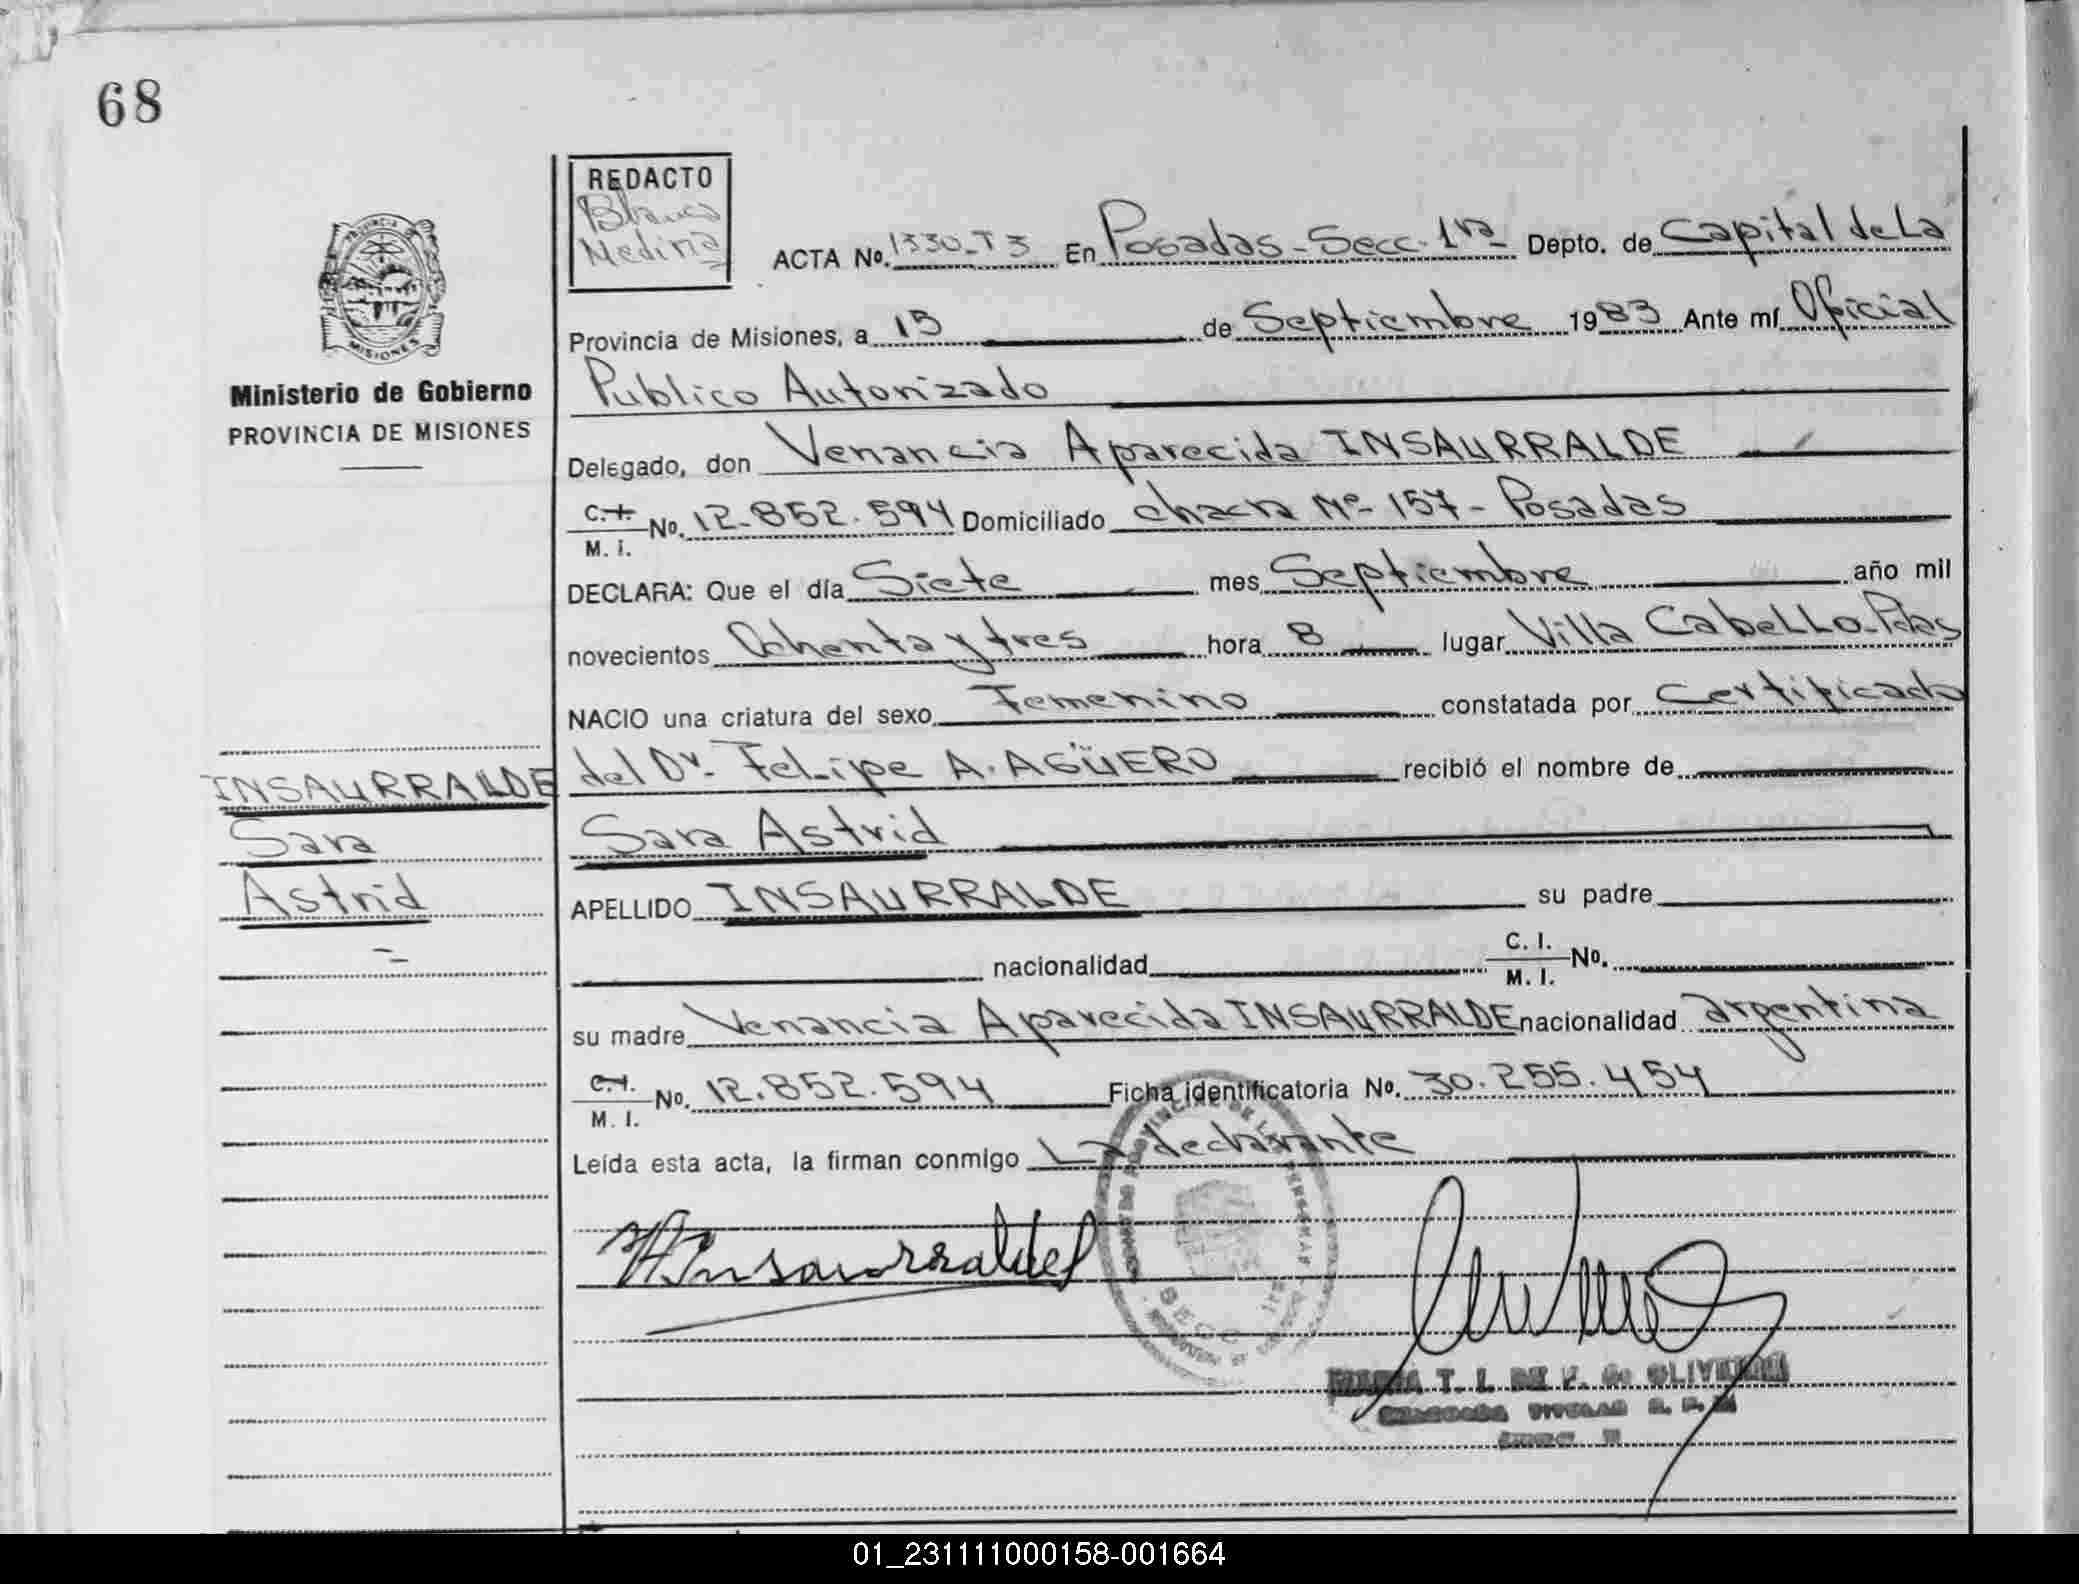 68
REDACTO
Blanca
Medina
ACTA No. 1330-T3 En Posadas-Secc. 1ra Depto. de Capital de La
Provincia de Misiones, a 15 de Septiembre 1983 Ante mí Oficial
Publico Autorizado
Delegado, don Venancia Aparecida INSAURRALDE
C.I. / M. I. No. 12.852.594 Domiciliado chacra Nº 157 - Posadas
DECLARA: Que el día Siete mes Septiembre año mil
novecientos Ochenta y tres hora 8 lugar Villa Cabello-Pdas
NACIO una criatura del sexo Femenino constatada por certificado
del Dr. Felipe A. AGÜERO recibió el nombre de
Sara Astrid
APELLIDO INSAURRALDE su padre
nacionalidad C. I. / M. I. No.
su madre Venancia Aparecida INSAURRALDE nacionalidad argentina
C.I. / M. I. No. 12.852.594 Ficha identificatoria No. 30.255.454
Leída esta acta, la firman conmigo La declarante
PROVINCIA
MISIONES
Ministerio de Gobierno
PROVINCIA DE MISIONES
INSAURRALDE
Sara
Astrid
V A Insaurralde
T. I. DE F. de OLIVEIRA
TITULAR
01_231111000158-001664